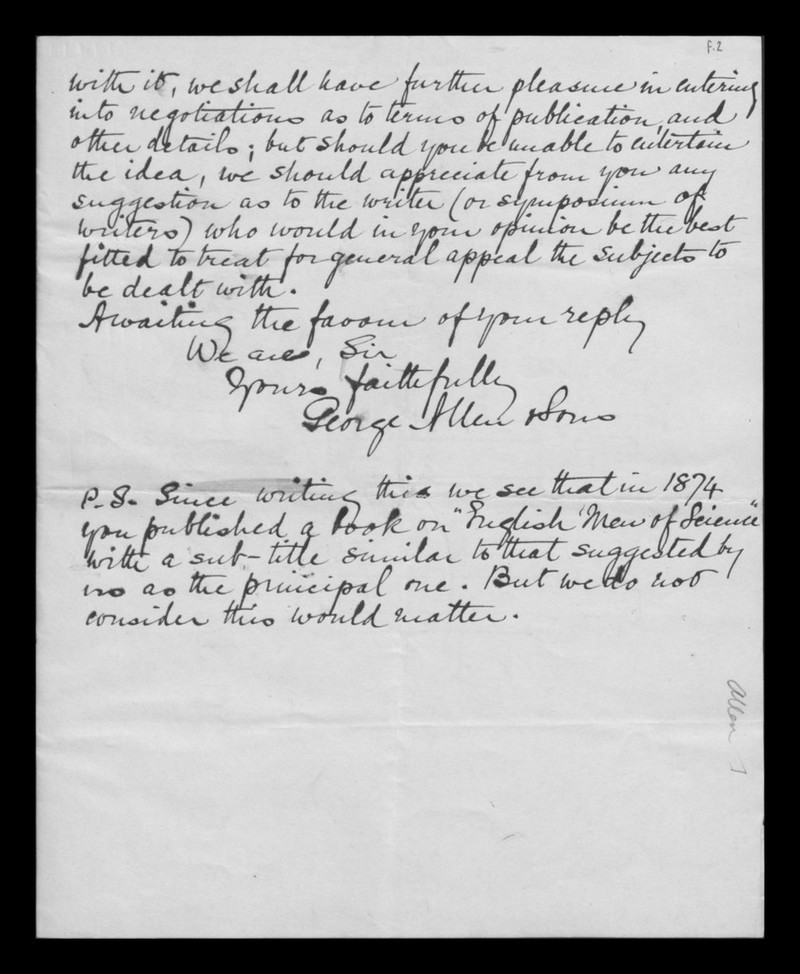 f.2
with it, we shall have further pleasure in entering
into negotiations as to terms of publication, and
other details; but should you be unable to entertain
the idea, we should appreciate from you any
suggestion as to the writer (or symposium of
writers) who would in your opinion be the best
fitted to treat for general appeal the subjects to
be dealt with.
Awaiting the favour of your reply
We are, Sir
Yours faithfully
George Allen & Sons
P.S. Since writing this we see that in 1874
you published a book on "English Men of Science"
with a sub-title similar to that suggested by
us as the principal one. But we do not
consider this would matter.
Allen J